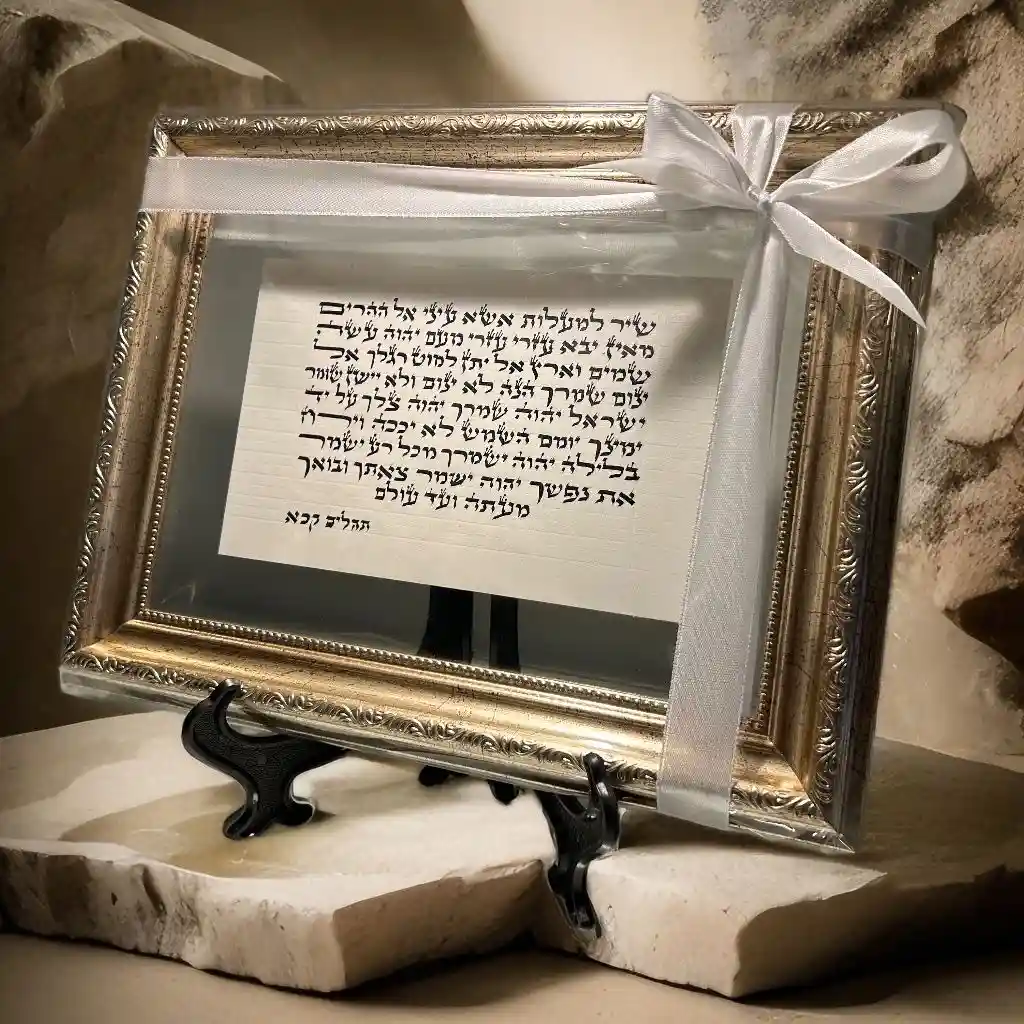 שיר למעלות אשא עיני אל ההרים
מאין יבא עזרי עזרי מעם יהוה עשה
שמים וארץ אל יתן למוט רגלך אל
ינום שמרך הנה לא ינום ולא יישן שומר
ישראל יהוה שמרך יהוה צלך על יד
ימינך יומם השמש לא יככה וירח
בלילה יהוה ישמרך מכל רע ישמר
את נפשך יהוה ישמר צאתך ובואך
מעתה ועד עולם
תהלים קכא